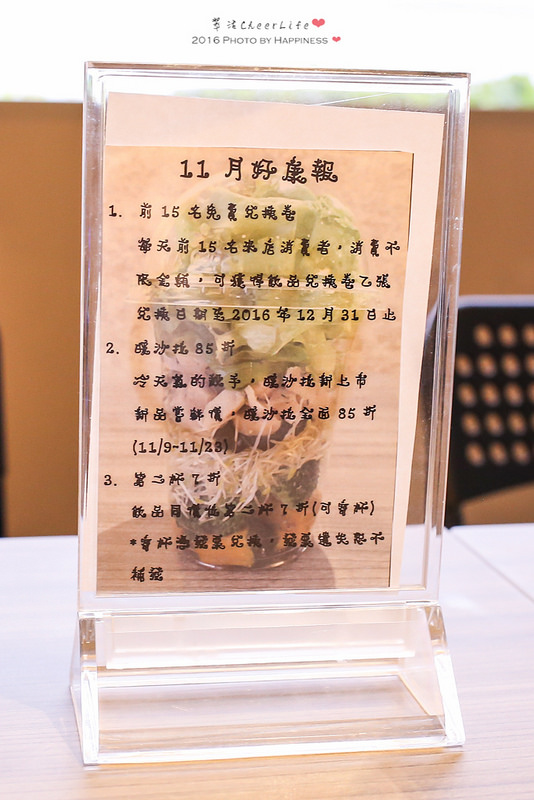 萃活CheerLife
2016 PHOTO BY HAPPINESS
11 月好康報
1. 前 15 名免費兌換卷
每天前 15 名來店消費者，消費不
限金額，可獲得飲品兌換卷乙張
兌換日期至 2016 年 12 月 31 日止
2. 暖沙拉 85 折
冷天氣的歌手，暖沙拉新上市
新品嘗鮮價，暖沙拉全面 85 折
(11/9~11/23)
3. 第二杯 7 折
飲品同價位第二杯 7 折(可寄杯)
*寄杯憑發票兌換，發票遺失恕不
補發